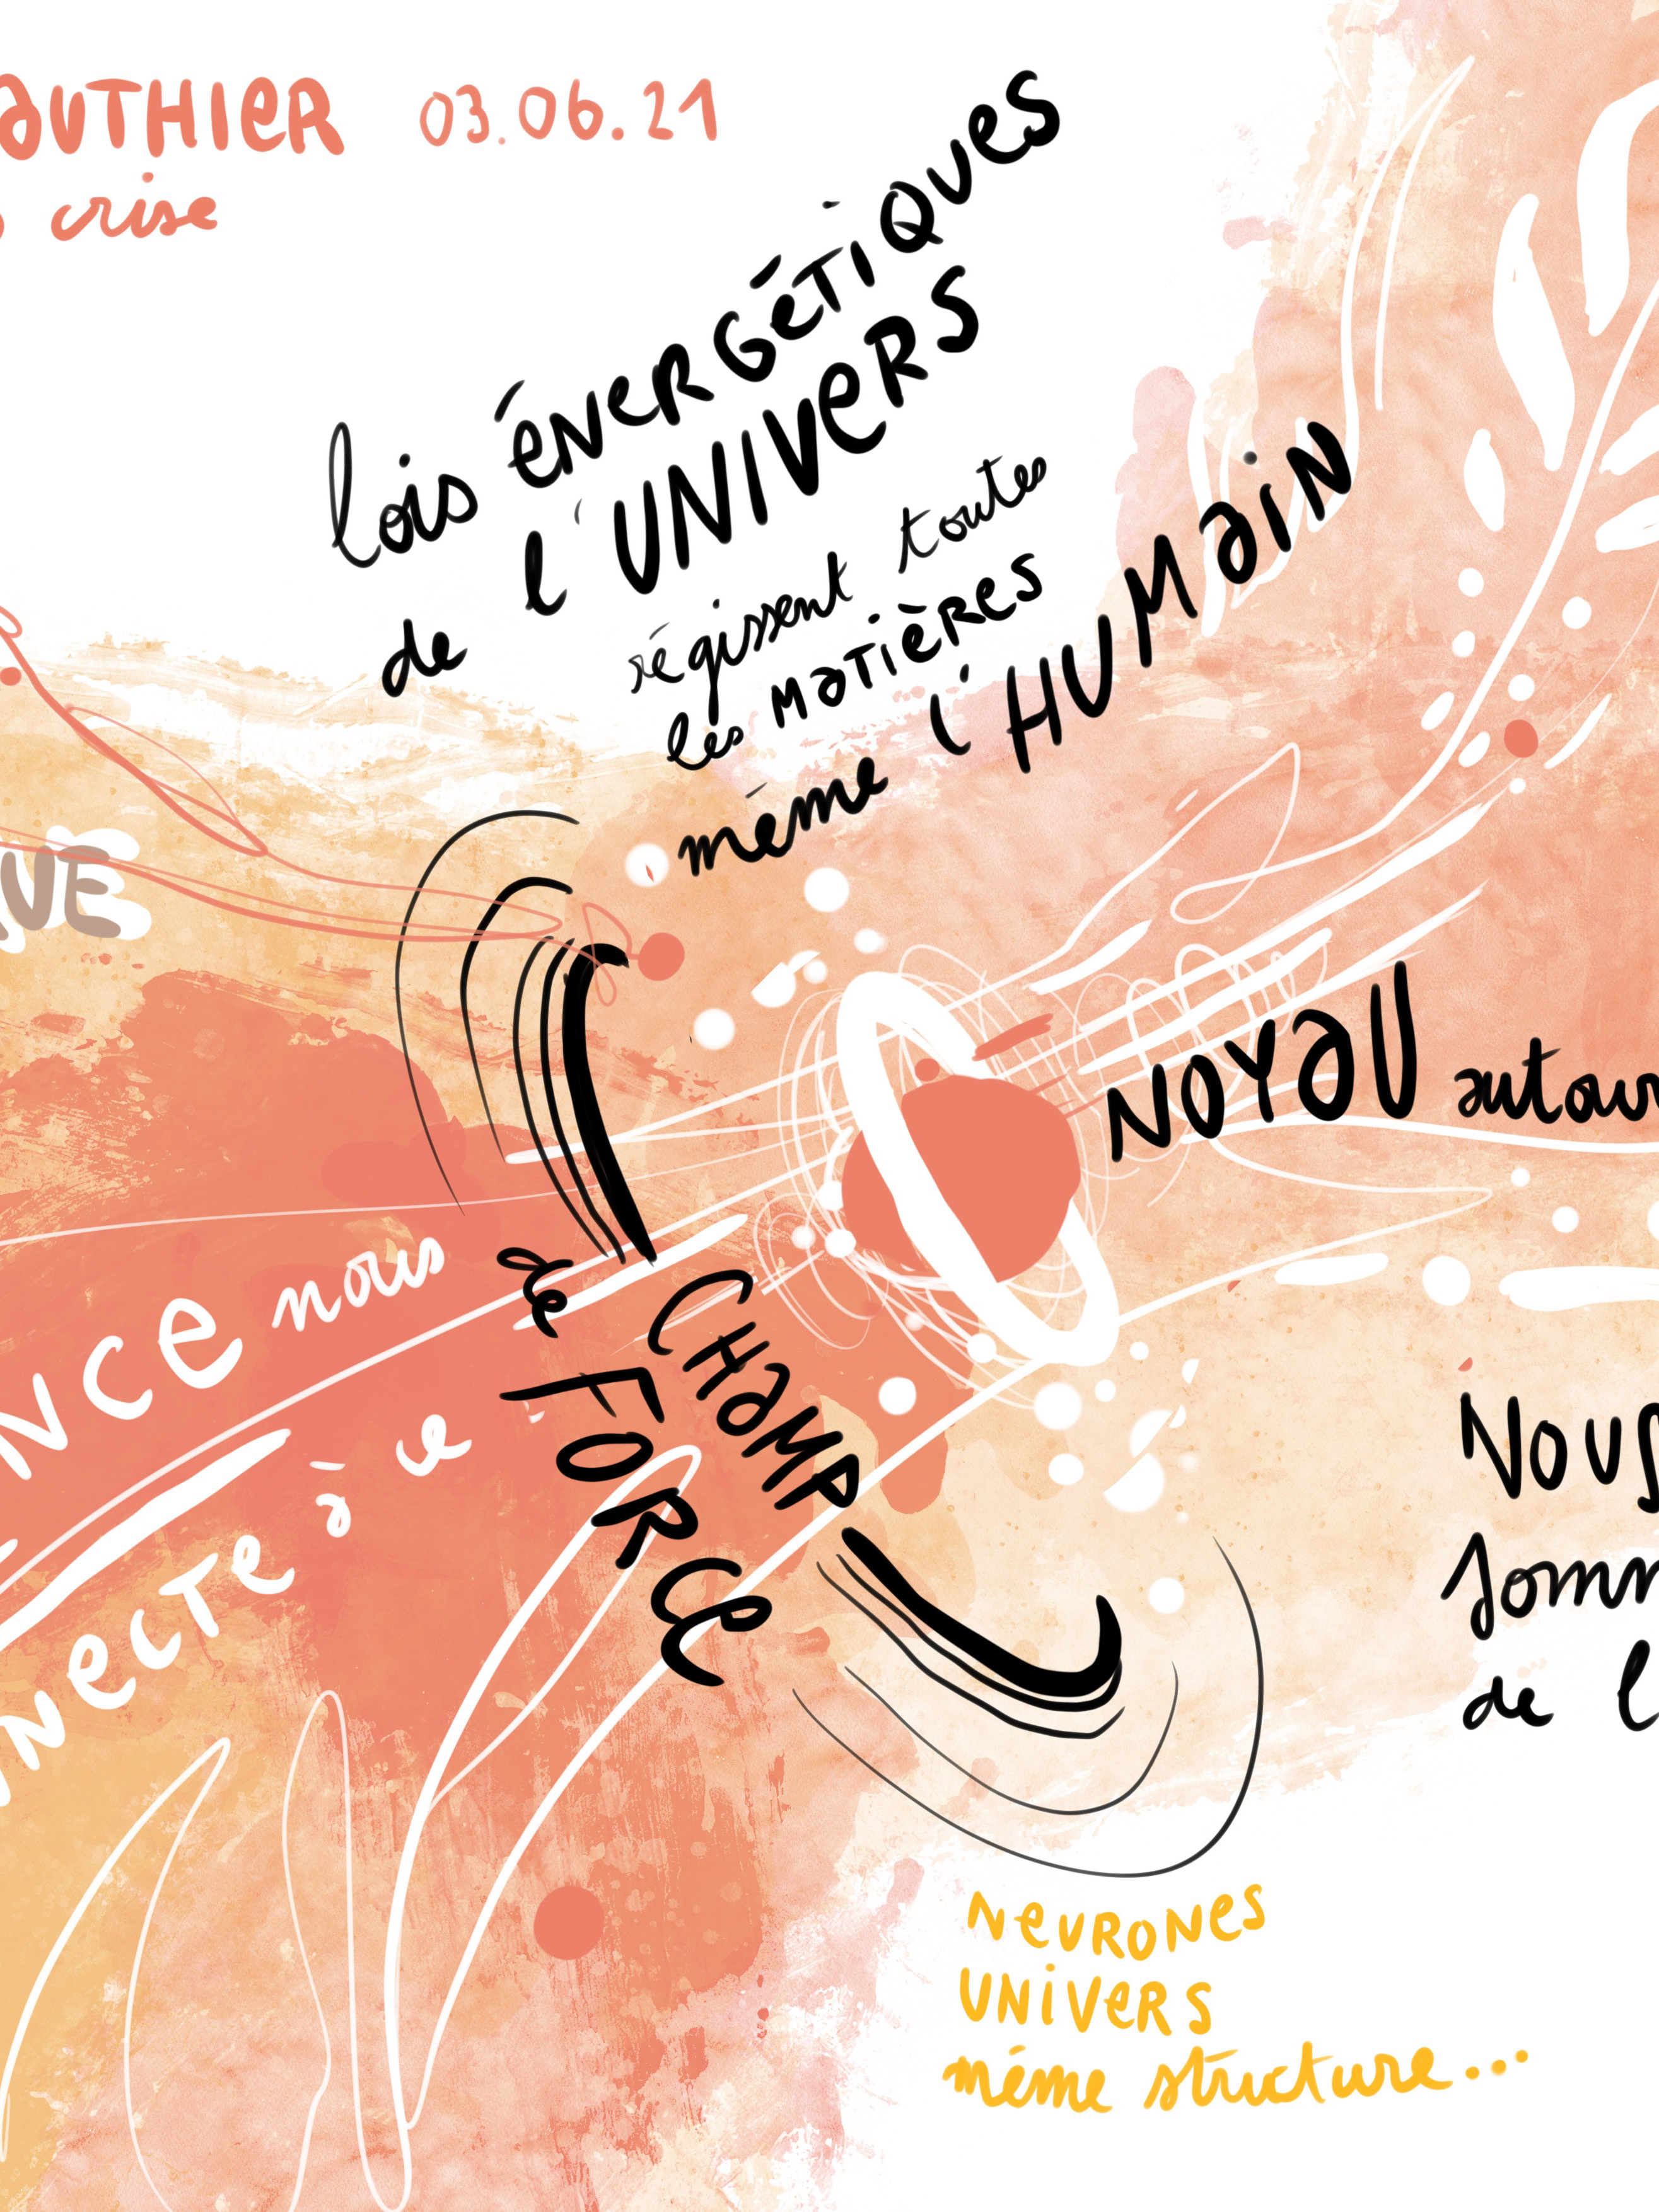 AUTHIER 03.06.21
crise
lois énergétiques
de l'UNIVERS
régissent toutes
les matières
même l'HUMAIN
NOYAU autour
CHAMP
de FORCE
NCE nous
NECTE à ce
NOUS
somm
de l
NEURONES
UNIVERS
même structure...